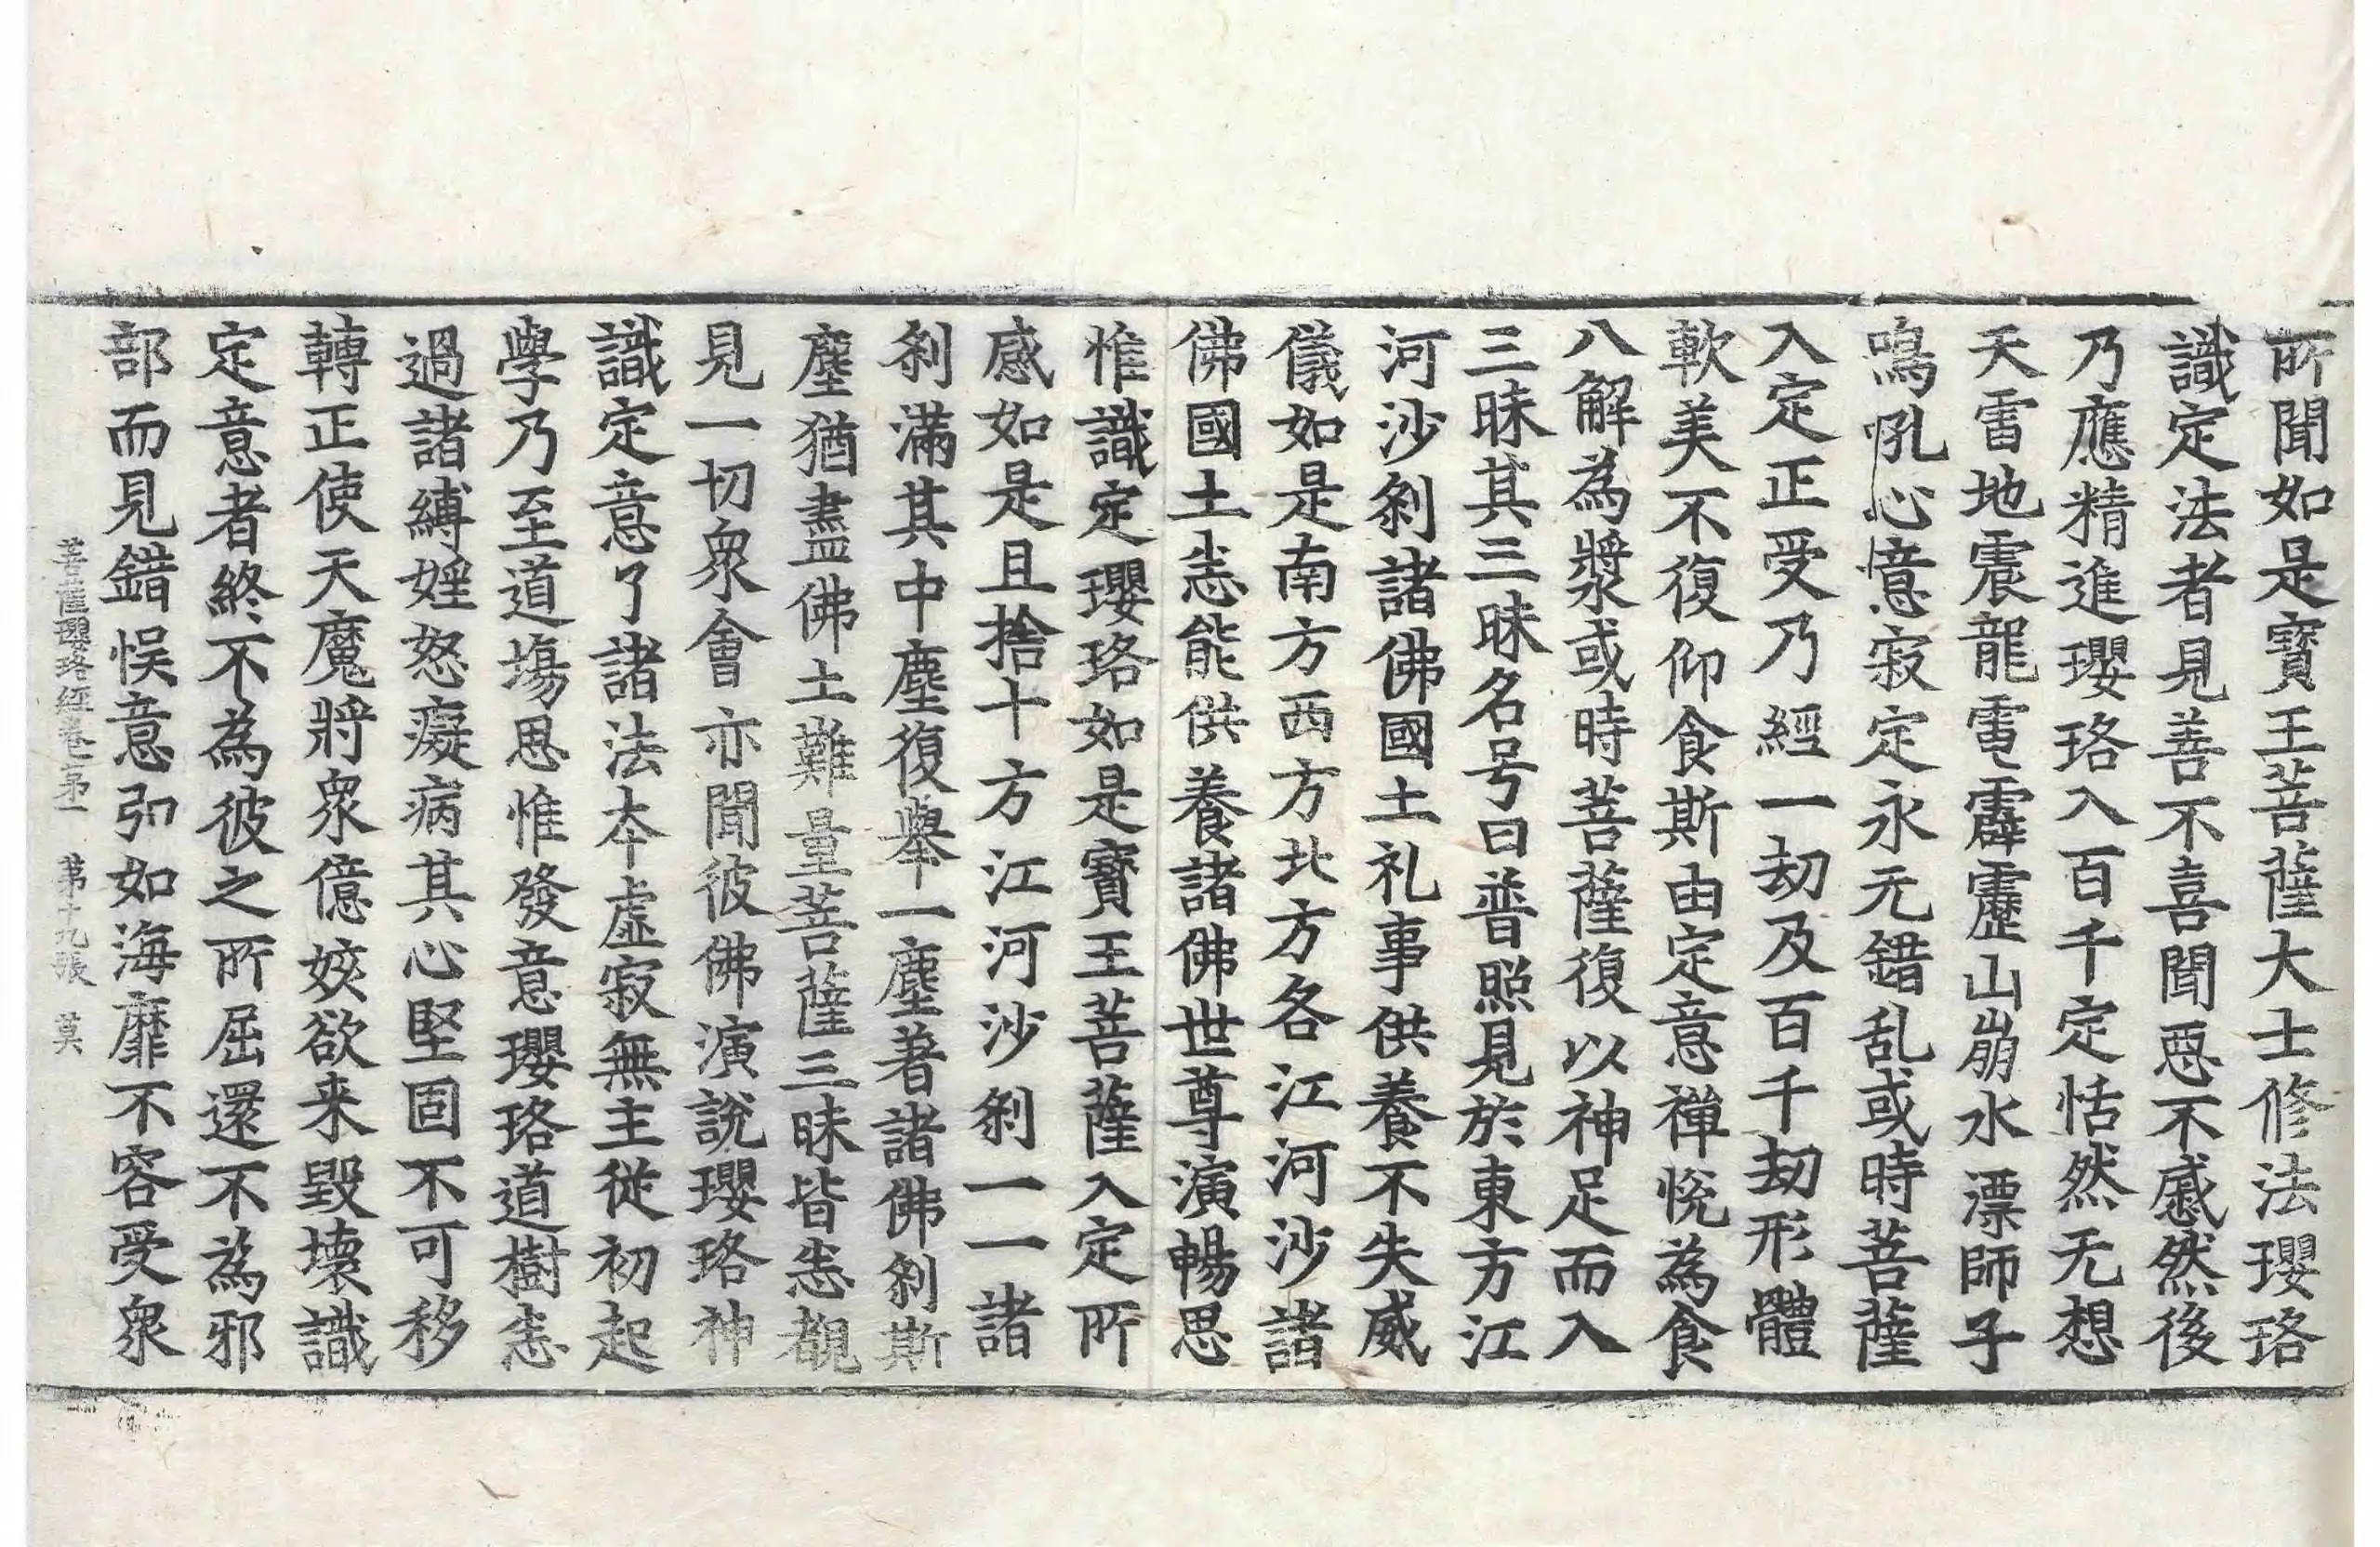 所聞如是寶王菩薩大士修法瓔珞
識定法者見善不喜聞惡不慼然後
乃應精進瓔珞入百千定恬然无想
天雷地震龍電霹靂山崩水漂師子
鳴吼心意寂定永无錯乱或時菩薩
入定正受乃經一劫及百千劫形體
軟美不復仰食斯由定意禪悅為食
八解為漿或時菩薩復以神足而入
三昧其三昧名号曰普照見於東方江
河沙剎諸佛國土礼事供養不失威
儀如是南方西方北方各江河沙諸
佛國土悉能供養諸佛世尊演暢思
惟識定瓔珞如是寶王菩薩入定所
感如是且捨十方江河沙剎一一諸
剎滿其中塵復舉一塵著諸佛剎斯
塵猶盡佛土難量菩薩三昧皆悉覩
見一切衆會亦聞彼佛演說瓔珞神
識定意了諸法本虛寂無主從初起
學乃至道場思惟發意瓔珞道樹悉
過諸縛婬怒癡病其心堅固不可移
轉正使天魔將衆億姟欲来毀壞識
定意者終不為彼之所屈還不為邪
部而見錯悞意弘如海靡不容受衆
菩薩瓔珞經卷苐一　苐十九張　莫